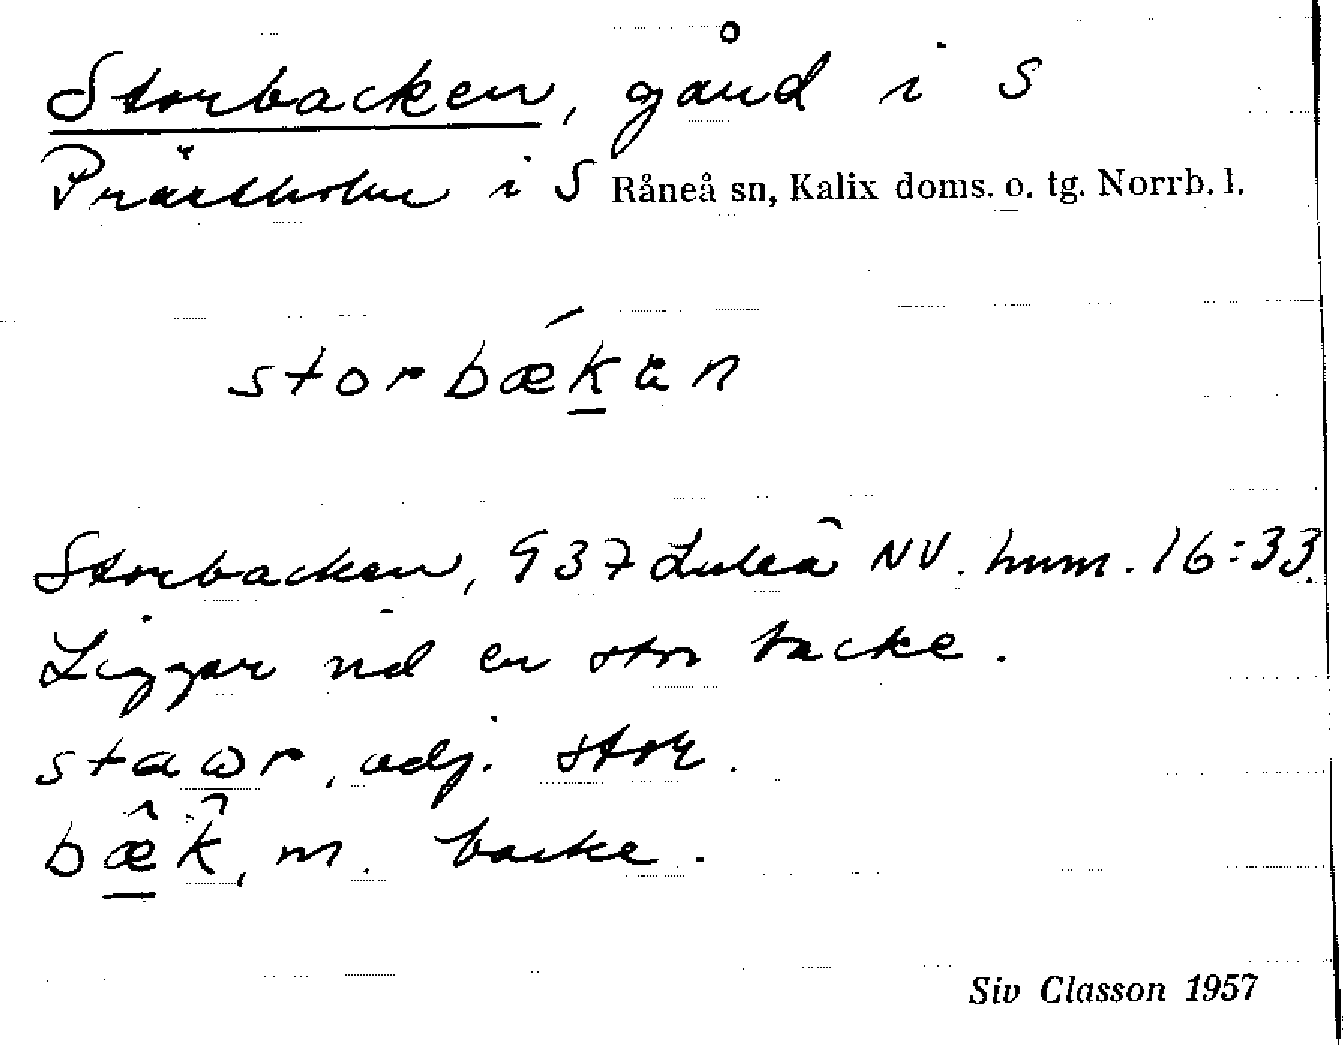 Storbacken, gård i S
Prästholm i S Råneå sn, Kalix doms. o. tg. Norrb. l.
storbǽkän
Storbacken, 937 Luleå NV. hum. 16:33.
Ligger vid en stor backe.
staωr, adj. stor.
bæ̂k̂, m. backe.
Siv Classon 1957